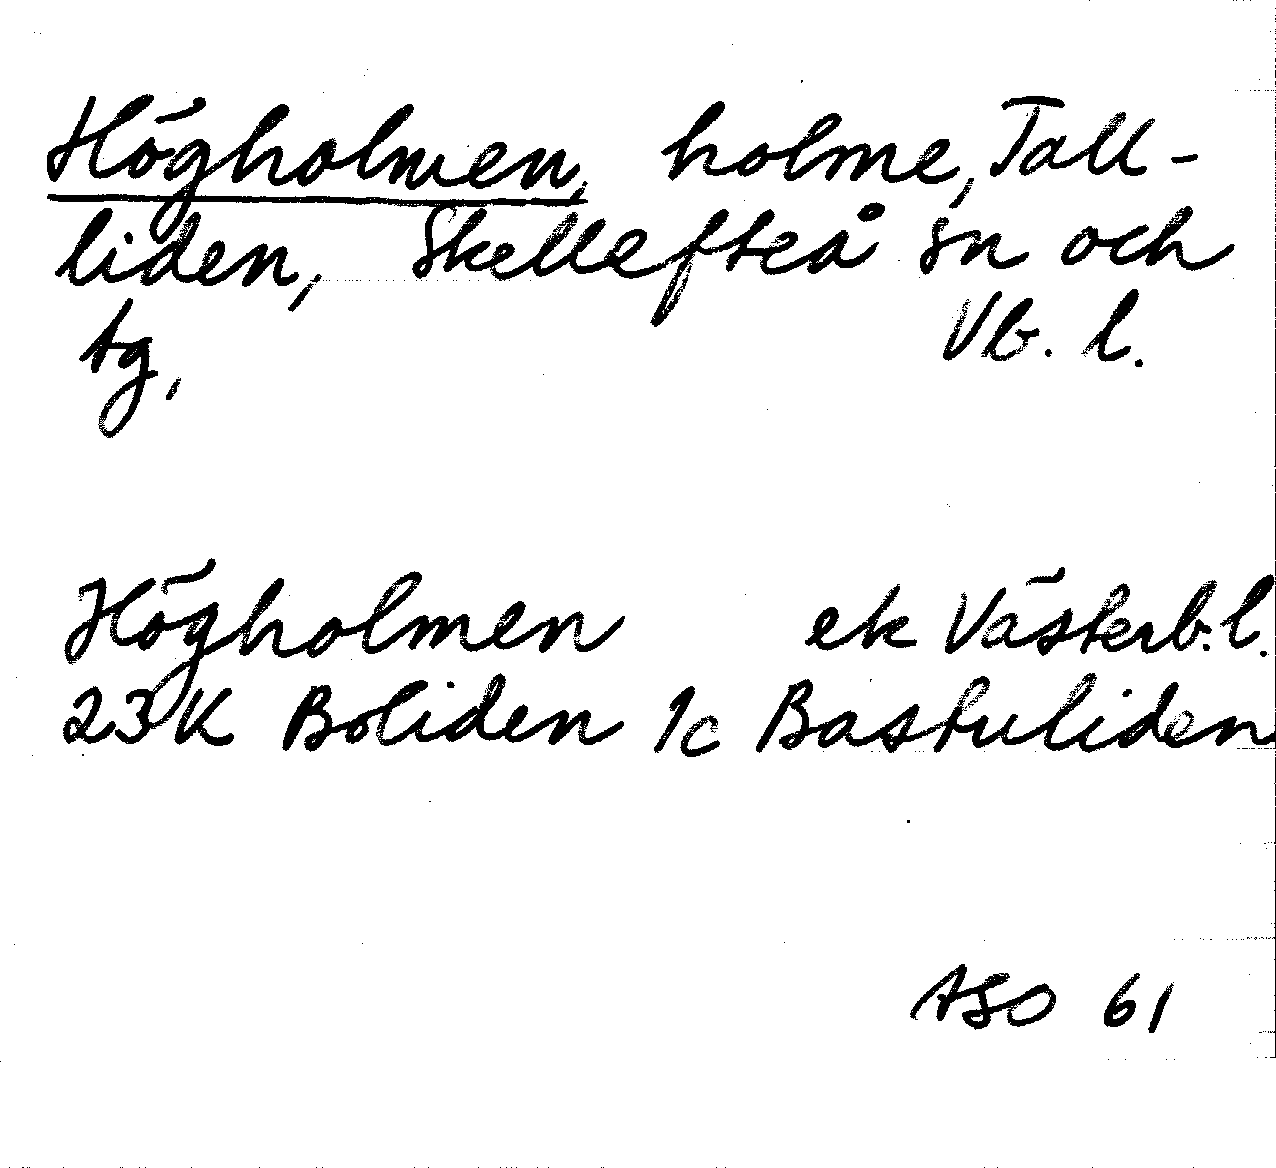 Högholmen, holme, Tall-
liden, Skellefteå sn och
tg, Vb. l.
Högholmen ek Västerb.l.
23K Boliden 1c Bastuliden
ASO 61